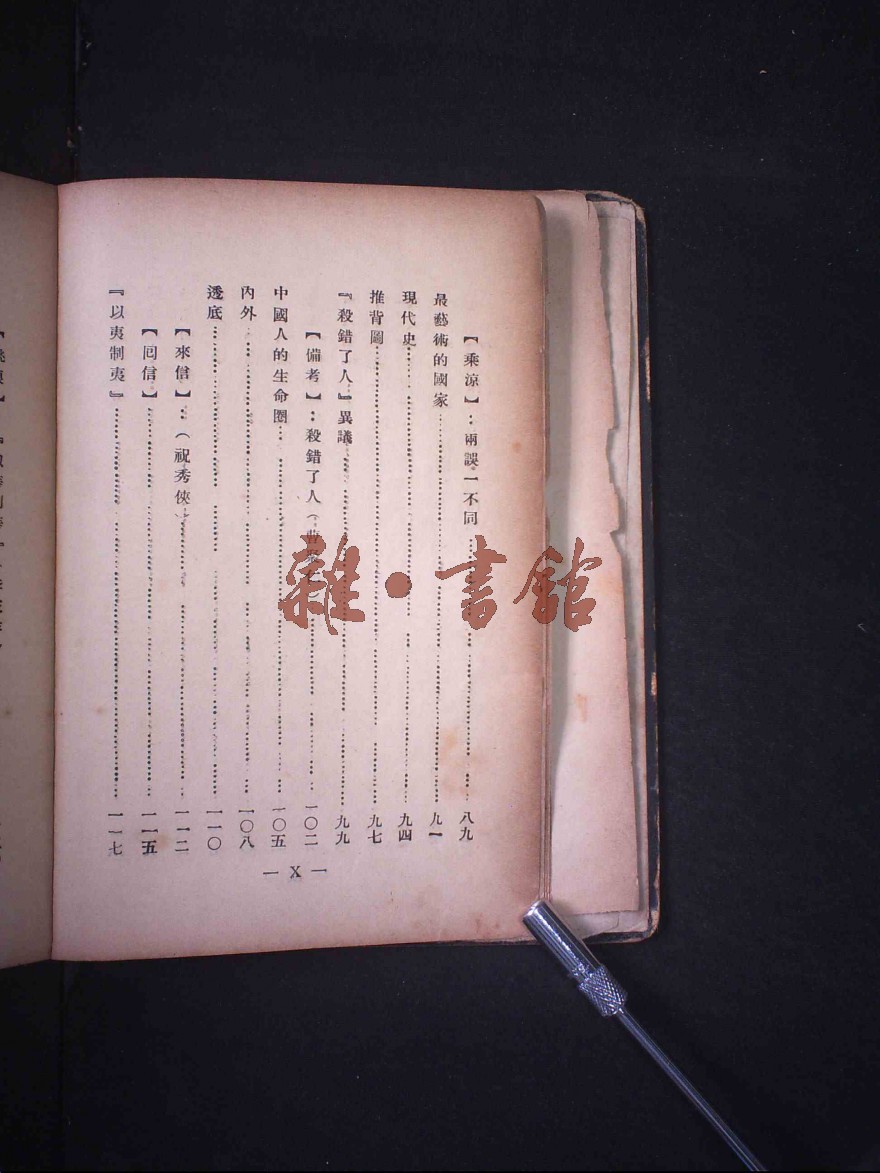 【乘涼】：兩誤一不同……八九
最藝術的國家……九一
現代史……九四
推背圖……九七
『殺錯了人』異議……九九
【備考】：殺錯了人（曹……一〇二
中國人的生命圈……一〇五
內外……一〇八
透底……一一〇
【來信】：（祝秀俠）……一一二
【回信】……一一五
『以夷制夷』……一一七
— X —
雜·書館